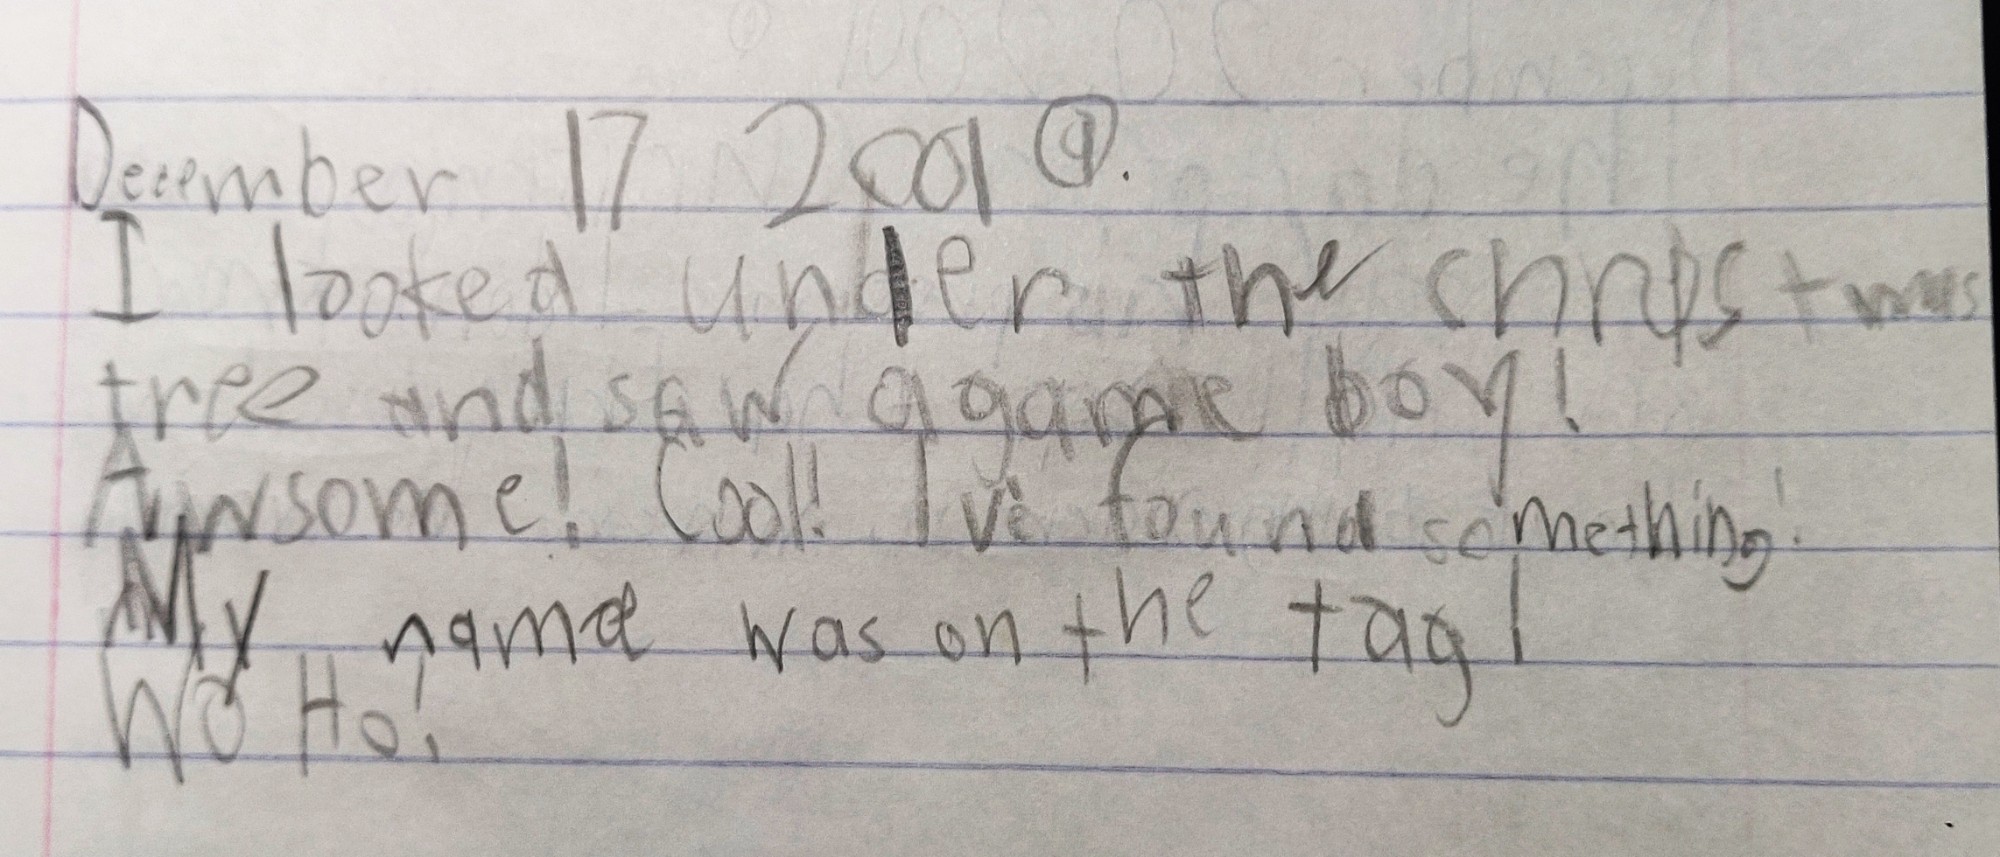 December 17 2001 ①.
I looked under the christmas
tree and saw a game boy!
Awsome! Cool! I've found something!
My name was on the tag!
Wo Ho!